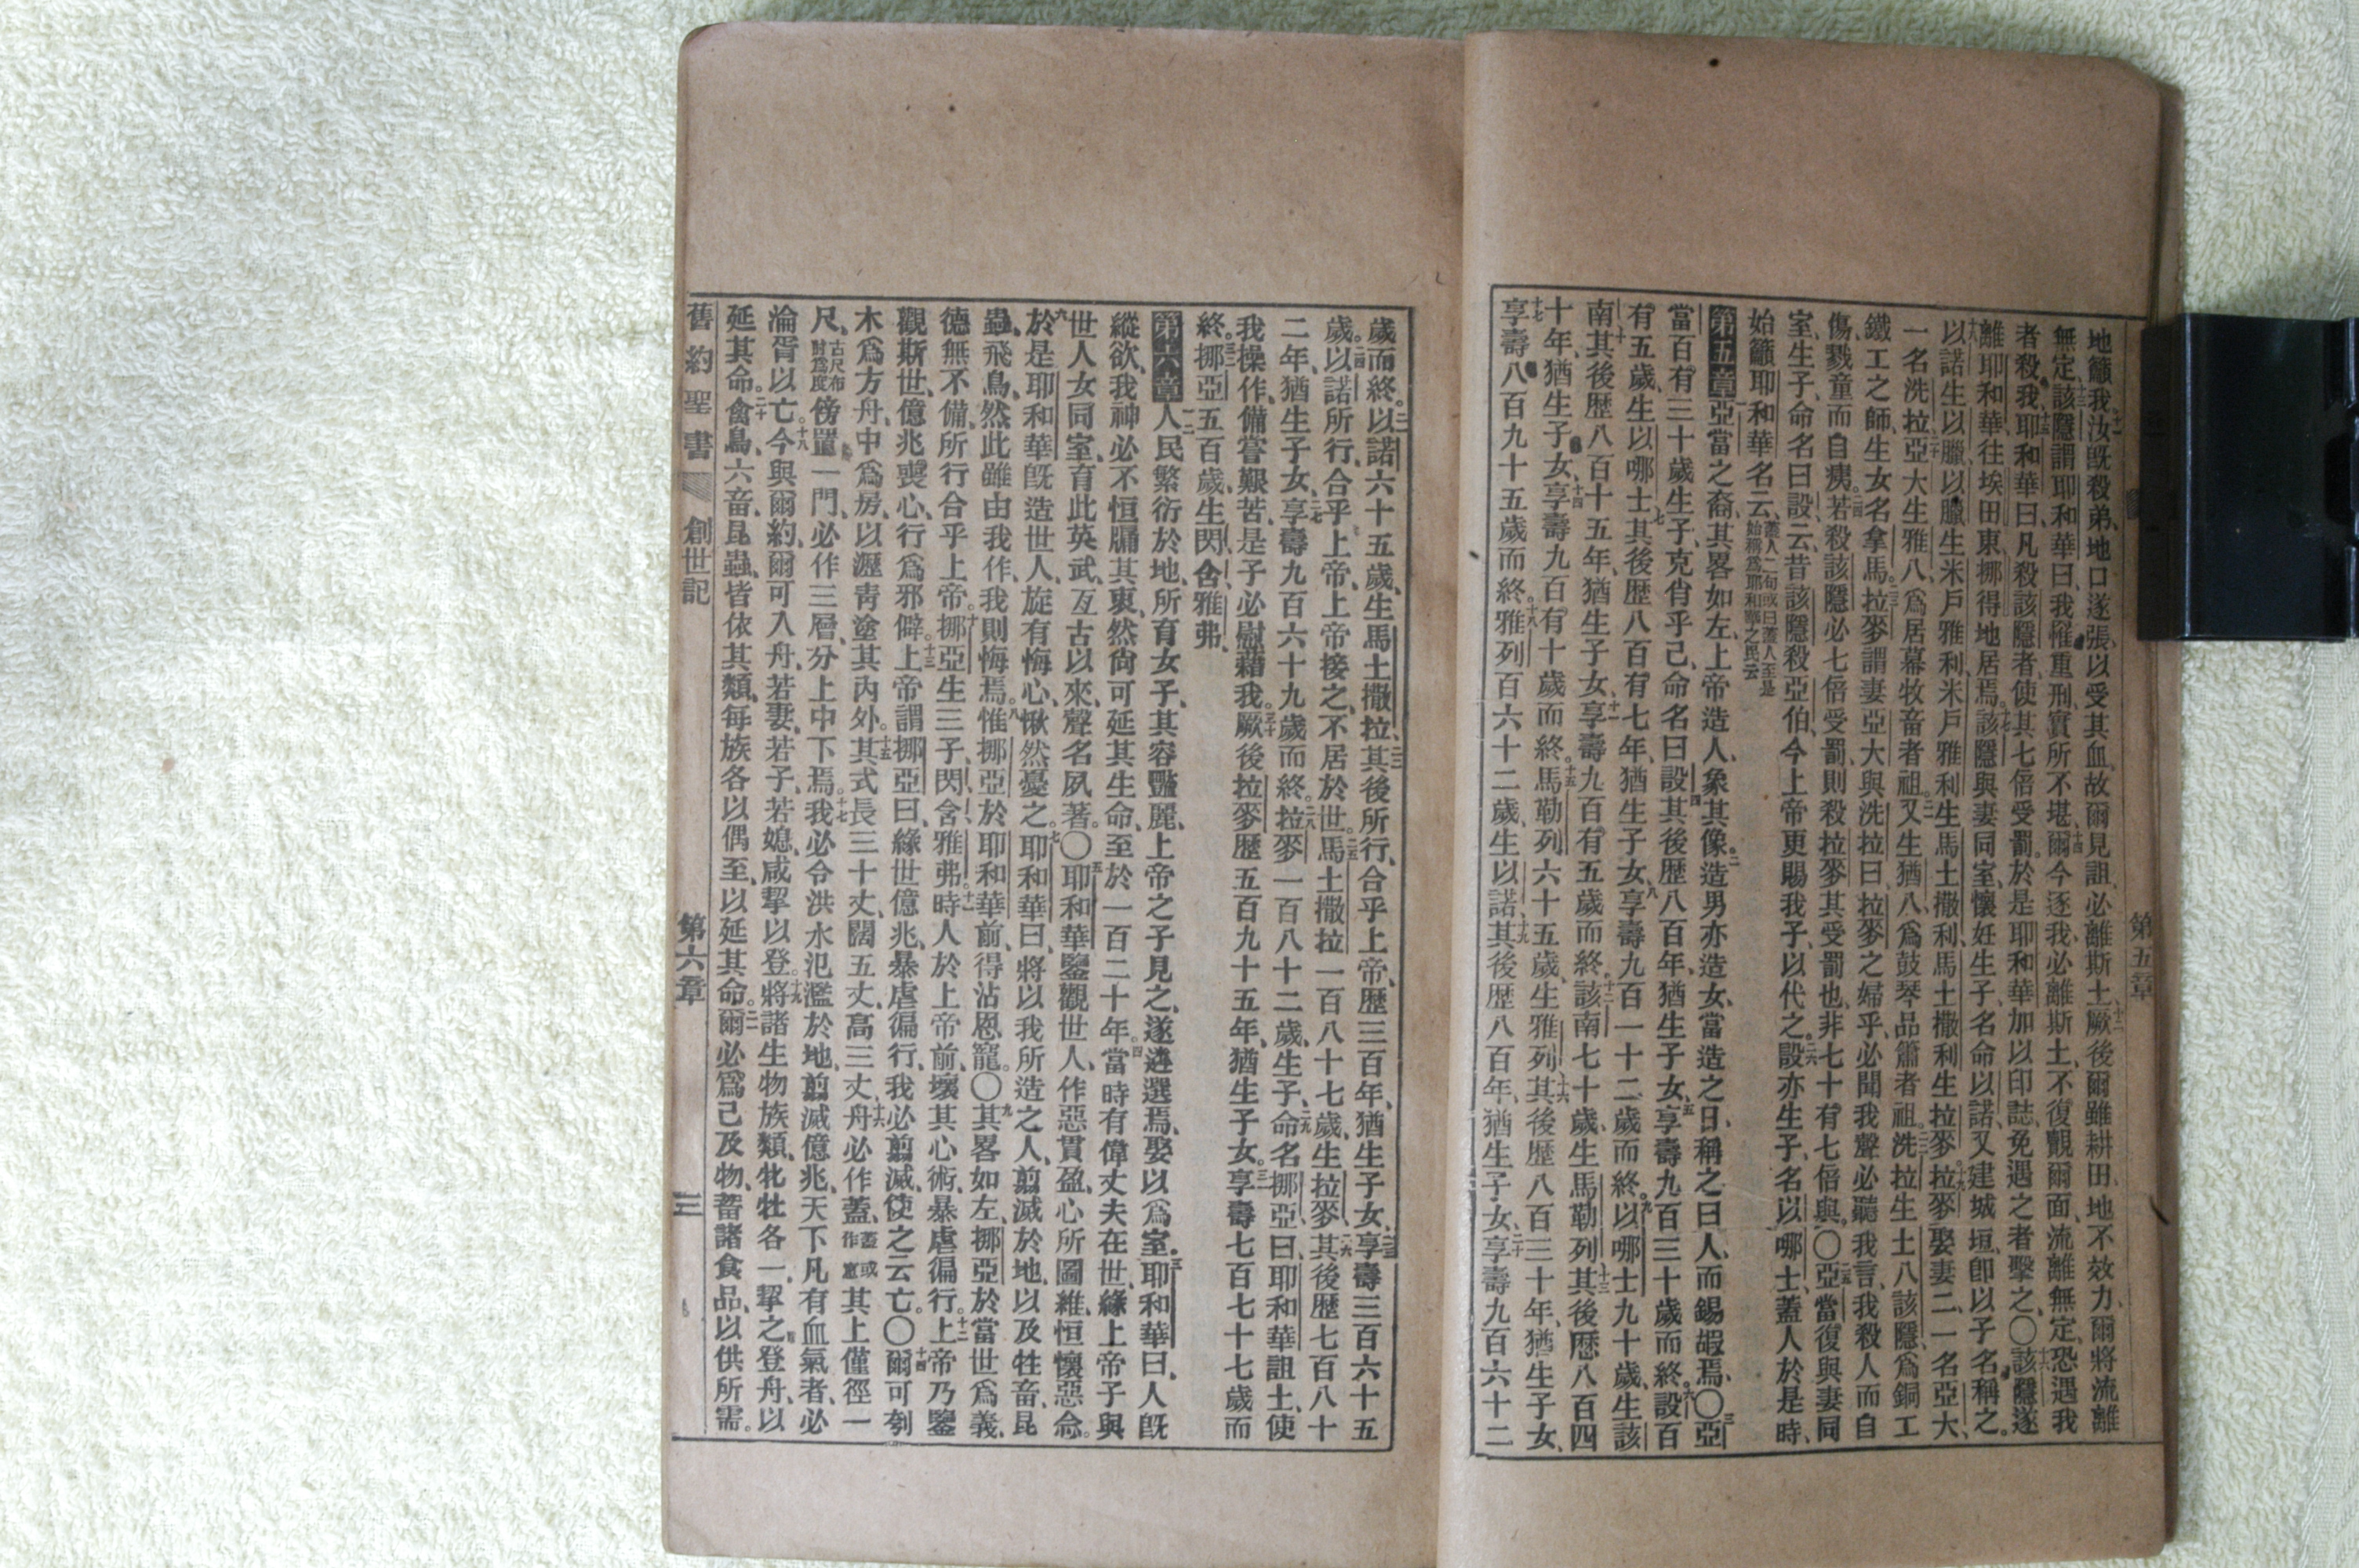 地籲我汝旣殺弟地口遂張以受其血故爾見詛必離斯土十二厥後爾雖耕田地不效力爾將流離
無定十三該隱謂耶和華曰我罹重刑實所不堪十四爾今逐我必離斯土不復覩爾面流離無定恐遇我
者殺我十五耶和華曰凡殺該隱者使其七倍受罰於是耶和華加以印誌免遇之者擊之〇十六該隱遂
離耶和華往埃田東挪得地居焉十七該隱與妻同室懷妊生子名命以諾又建城垣卽以子名稱之
十八以諾生以臘以臘生米戶雅利米戶雅利生馬土撒利馬土撒利生拉麥十九拉麥娶妻二一名亞大
一名洗拉二十亞大生雅八爲居幕牧畜者祖二一又生猶八爲鼓琴品簫者祖二二洗拉生土八該隱爲銅工
鐵工之師生女名拿馬二三拉麥謂妻亞大與洗拉曰拉麥之婦乎必聞我聲必聽我言我殺人而自
傷戮童而自痍二四若殺該隱必七倍受罰則殺拉麥其受罰也非七十有七倍與〇二五亞當復與妻同
室生子命名曰設云昔該隱殺亞伯今上帝更賜我子以代之二六設亦生子名以哪士蓋人於是時
始籲耶和華名云蓋人二句或曰蓋人至是始稱爲耶和華之民云
第五章一亞當之裔其畧如左上帝造人象其像二造男亦造女當造之日稱之曰人而錫嘏焉〇三亞
當百有三十歲生子克肖乎己命名曰設四其後歷八百年猶生子女五享壽九百三十歲而終六設百
有五歲生以哪士七其後歷八百有七年猶生子女八享壽九百一十二歲而終九以哪士九十歲生該
南十其後歷八百十五年猶生子女十一享壽九百有五歲而終十二該南七十歲生馬勒列十三其後歷八百四
十年猶生子女十四享壽九百有十歲而終十五馬勒列六十五歲生雅列十六其後歷八百三十年猶生子女
十七享壽八百九十五歲而終十八雅列百六十二歲生以諾十九其後歷八百年猶生子女二十享壽九百六十二
第五章
歲而終二一以諾六十五歲生馬土撒拉二二其後所行合乎上帝歷三百年猶生子女二三享壽三百六十五
歲二四以諾所行合乎上帝上帝接之不居於世二五馬土撒拉一百八十七歲生拉麥二六其後歷七百八十
二年猶生子女二七享壽九百六十九歲而終二八拉麥一百八十二歲生子二九命名挪亞曰耶和華詛土使
我操作備嘗艱苦是子必慰藉我三十厥後拉麥歷五百九十五年猶生子女三一享壽七百七十七歲而
終三二挪亞五百歲生閃含雅弗
第六章一人民繁衍於地所育女子二其容豔麗上帝之子見之遂遴選焉娶以爲室三耶和華曰人旣
縱欲我神必不恒牖其衷然尚可延其生命至於一百二十年四當時有偉丈夫在世緣上帝子與
世人女同室育此英武亙古以來聲名夙著〇五耶和華鑒觀世人作惡貫盈心所圖維恒懷惡念
六於是耶和華旣造世人旋有悔心愀然憂之七耶和華曰將以我所造之人翦滅於地以及牲畜昆
蟲飛鳥然此雖由我作我則悔焉八惟挪亞於耶和華前得沾恩寵〇九其畧如左挪亞於當世爲義
德無不備所行合乎上帝十挪亞生三子閃含雅弗十一時人於上帝前壞其心術暴虐徧行十二上帝乃鑒
觀斯世億兆喪心行爲邪僻十三上帝謂挪亞曰緣世億兆暴虐徧行我必翦滅使之云亡〇十四爾可刳
木爲方舟中爲房以瀝青塗其內外十五其式長三十丈闊五丈高三丈十六舟必作蓋蓋或作窻其上僅徑一
尺古尺布肘爲度傍置一門必作三層分上中下焉十七我必令洪水氾濫於地翦滅億兆天下凡有血氣者必
淪胥以亡十八今與爾約爾可入舟若妻若子若媳咸挈以登十九將諸生物族類牝牡各一挈之登舟以
延其命二十禽鳥六畜昆蟲皆依其類每族各以偶至以延其命二一爾必爲己及物蓄諸食品以供所需
舊約聖書 創世記 第六章 三